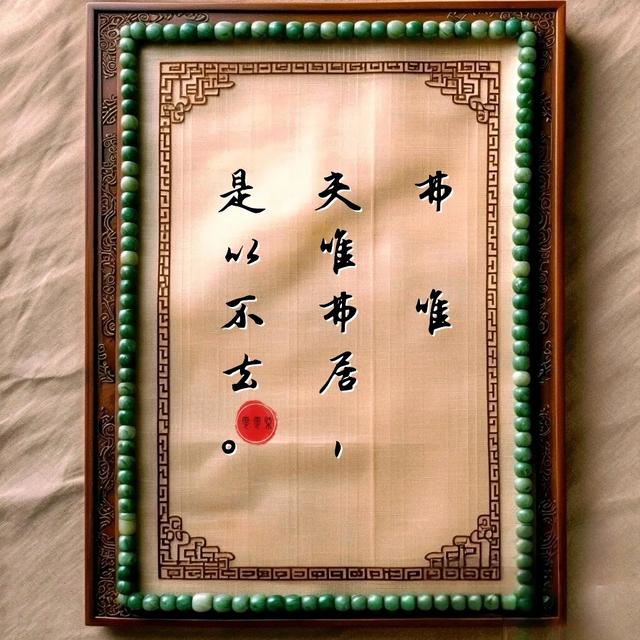 弗唯
夫唯弗居，
是以不去。